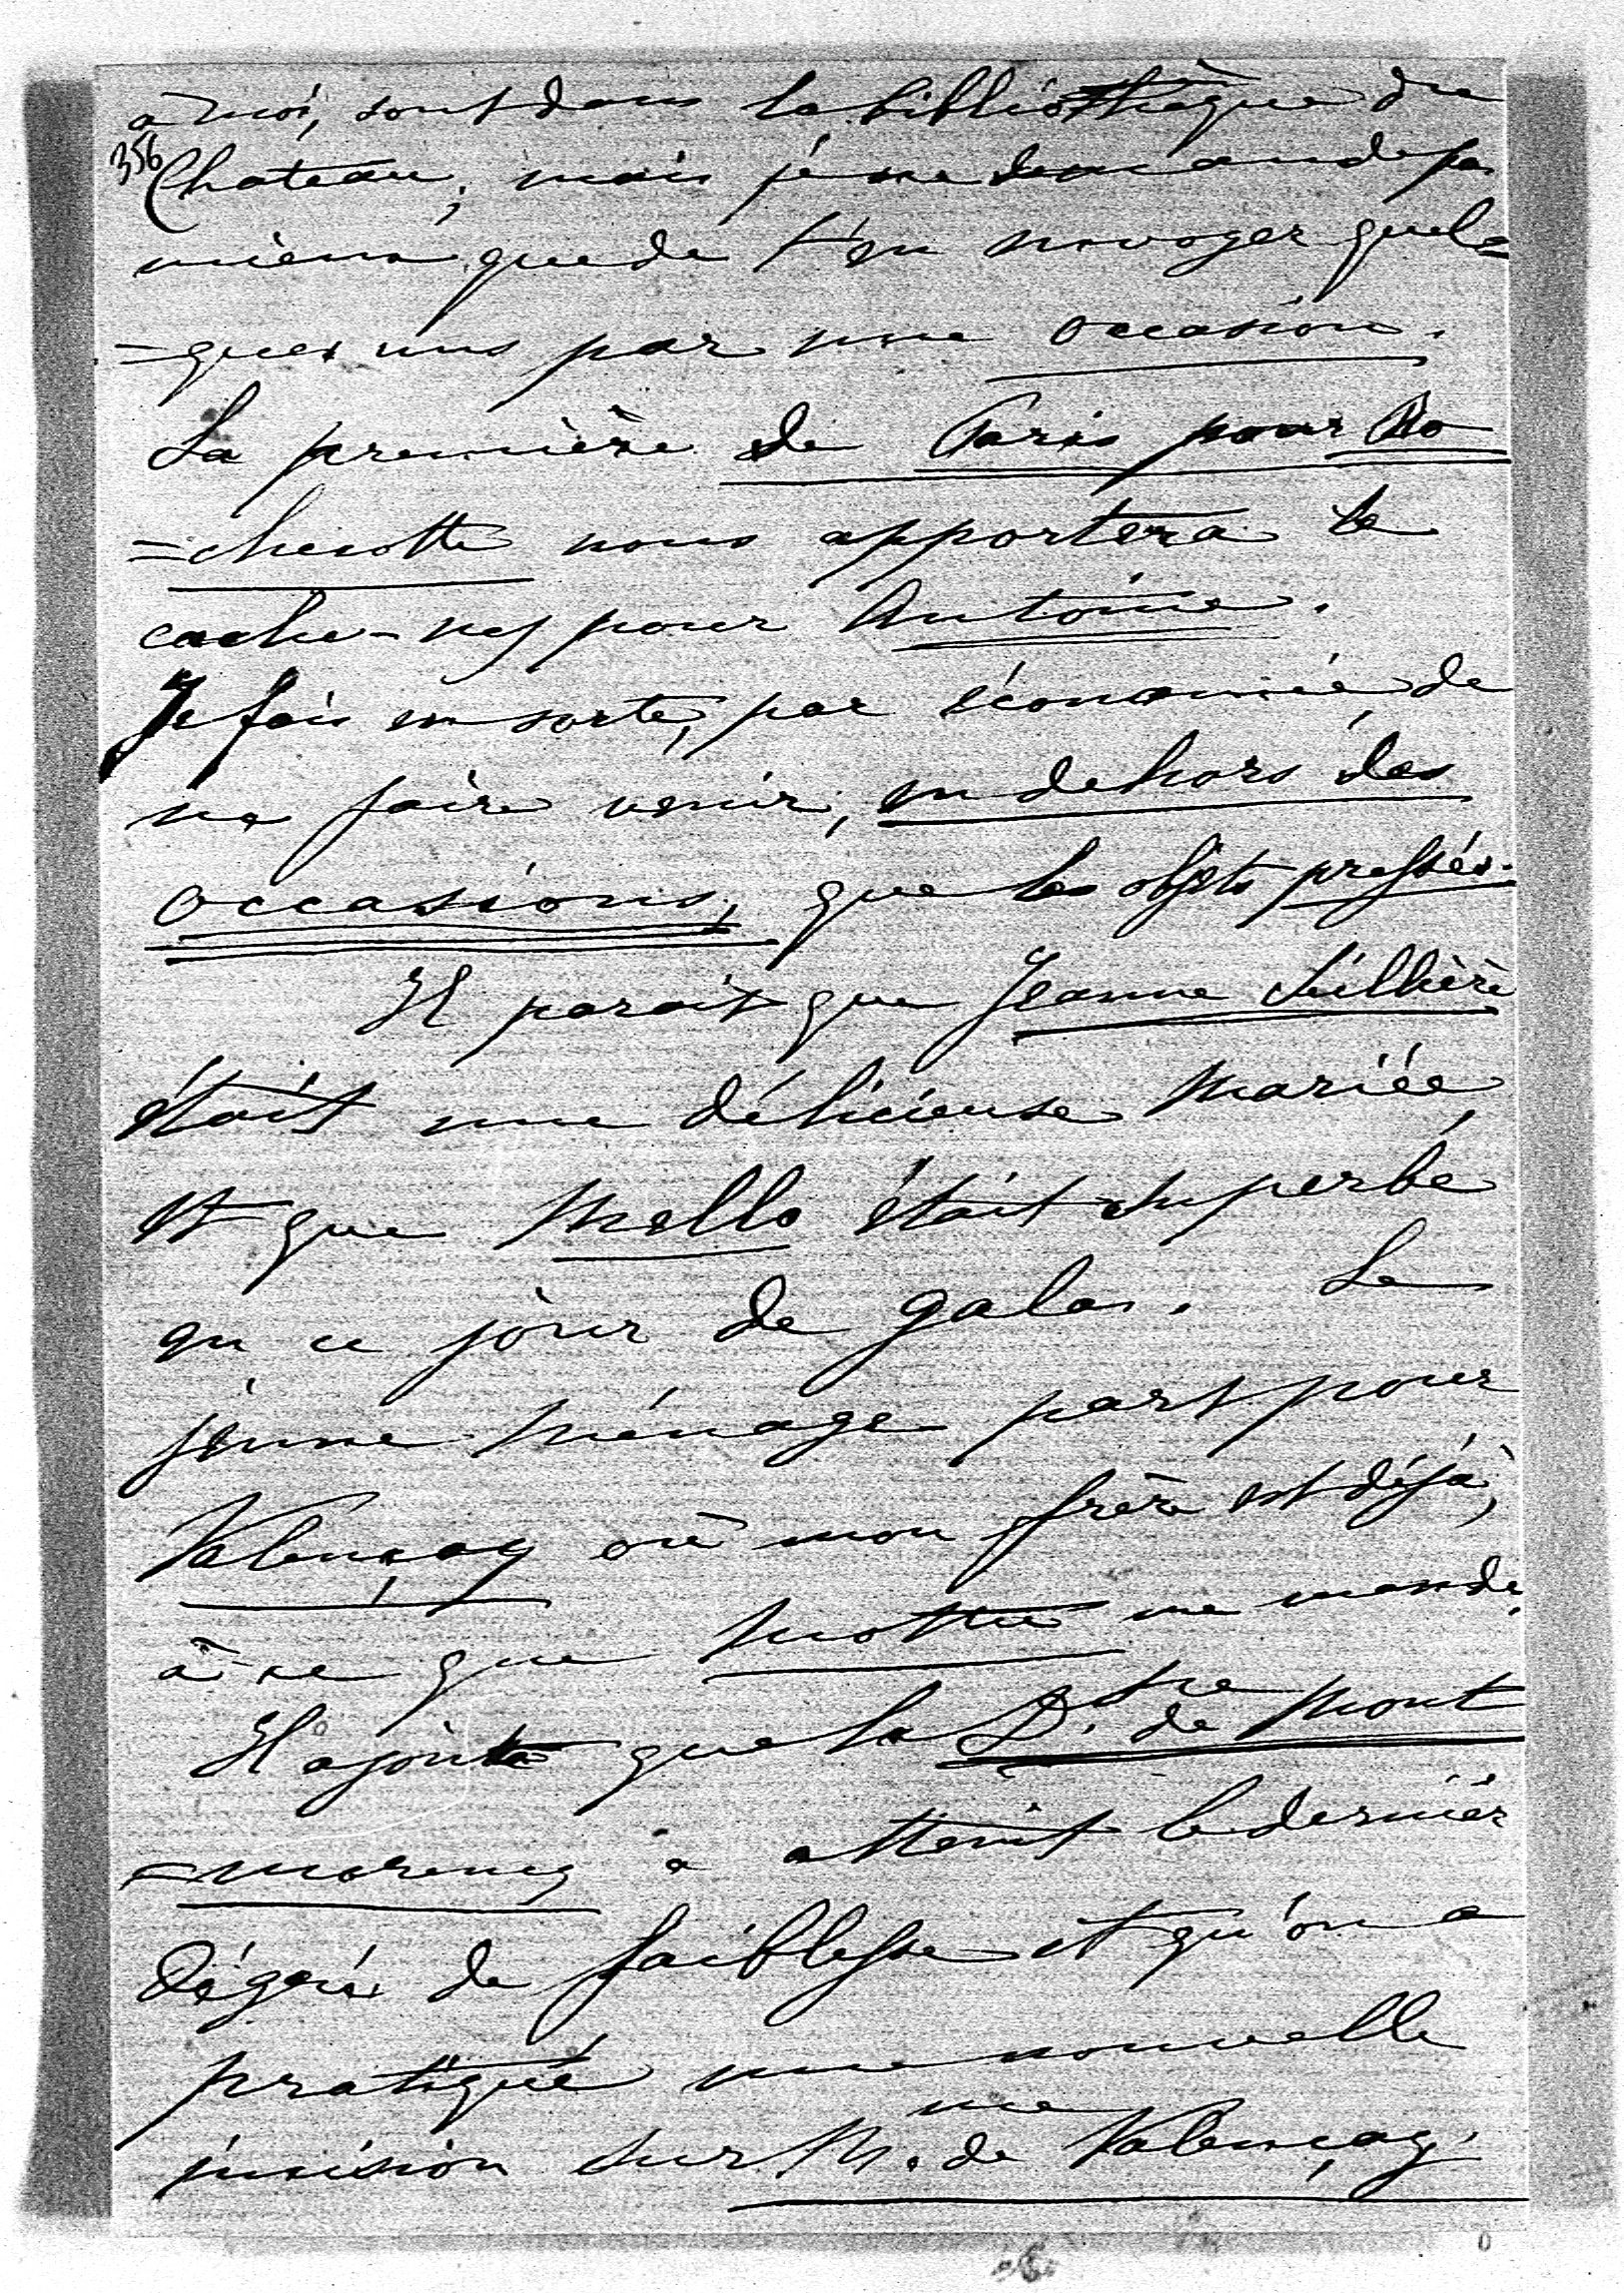 à moi, sont dans la bibliothèque du
356
Chateau; mais je ne demande pas
mieux que de t'en envoyer quel=
=ques uns par une occasion.
La première de Paris pour Ro
=checotte nous apportera le
cache-nez pour Antoine.
Je fais en sorte, par économie, de
ne faire venir, en dehors des
occasions, que les objets pressés.
Il parait que Jeanne Seillière
était une délicieuse mariée,
et que Mello était superbe
en ce jour de gala. Le
jeune ménage part pour
Valençay où mon frère est déjà,
à ce que me mande.
Il ajoute que la D.sse de Mont
=morency a atteint le dernier
dégré de faiblesse et qu'on a
pratiqué une nouvelle
incision sur M.me de Valençay.